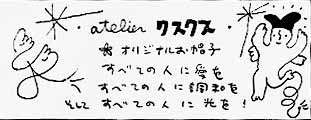 ・atelier クスクス・
オリジナルお帽子
すべての人に愛を
すべての人に調和を
そして すべての人に光を!